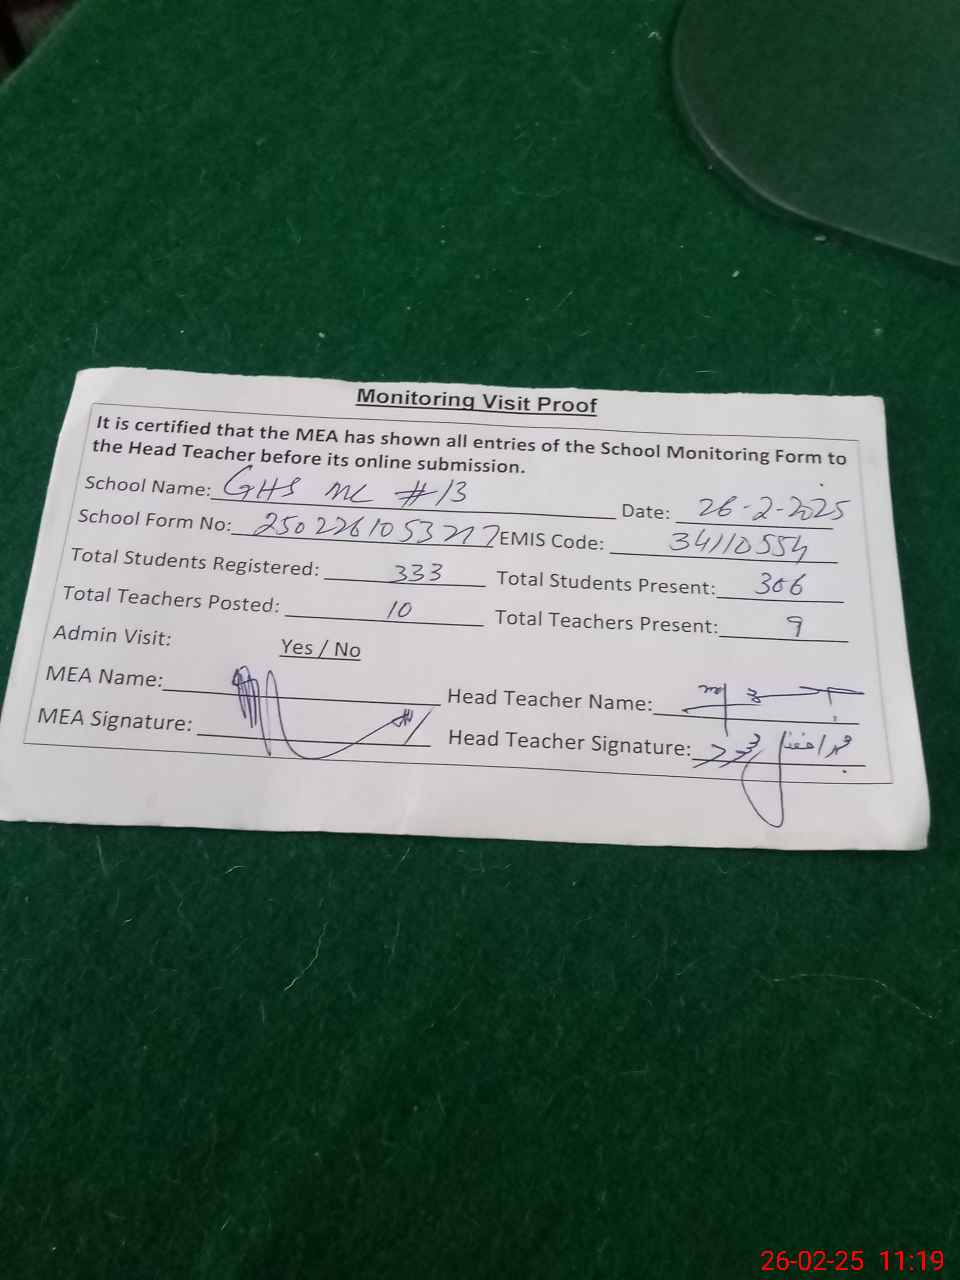 Monitoring Visit Proof
It is certified that the MEA has shown all entries of the School Monitoring Form to
the Head Teacher before its online submission.
School Name: GHS MC #13 Date: 26-2-2025
School Form No: 2502261053277 EMIS Code: 34110554
Total Students Registered: 333 Total Students Present: 306
Total Teachers Posted: 10 Total Teachers Present: 9
Admin Visit: Yes / No
MEA Name: Head Teacher Name:
MEA Signature: Head Teacher Signature:
26-02-25 11:19